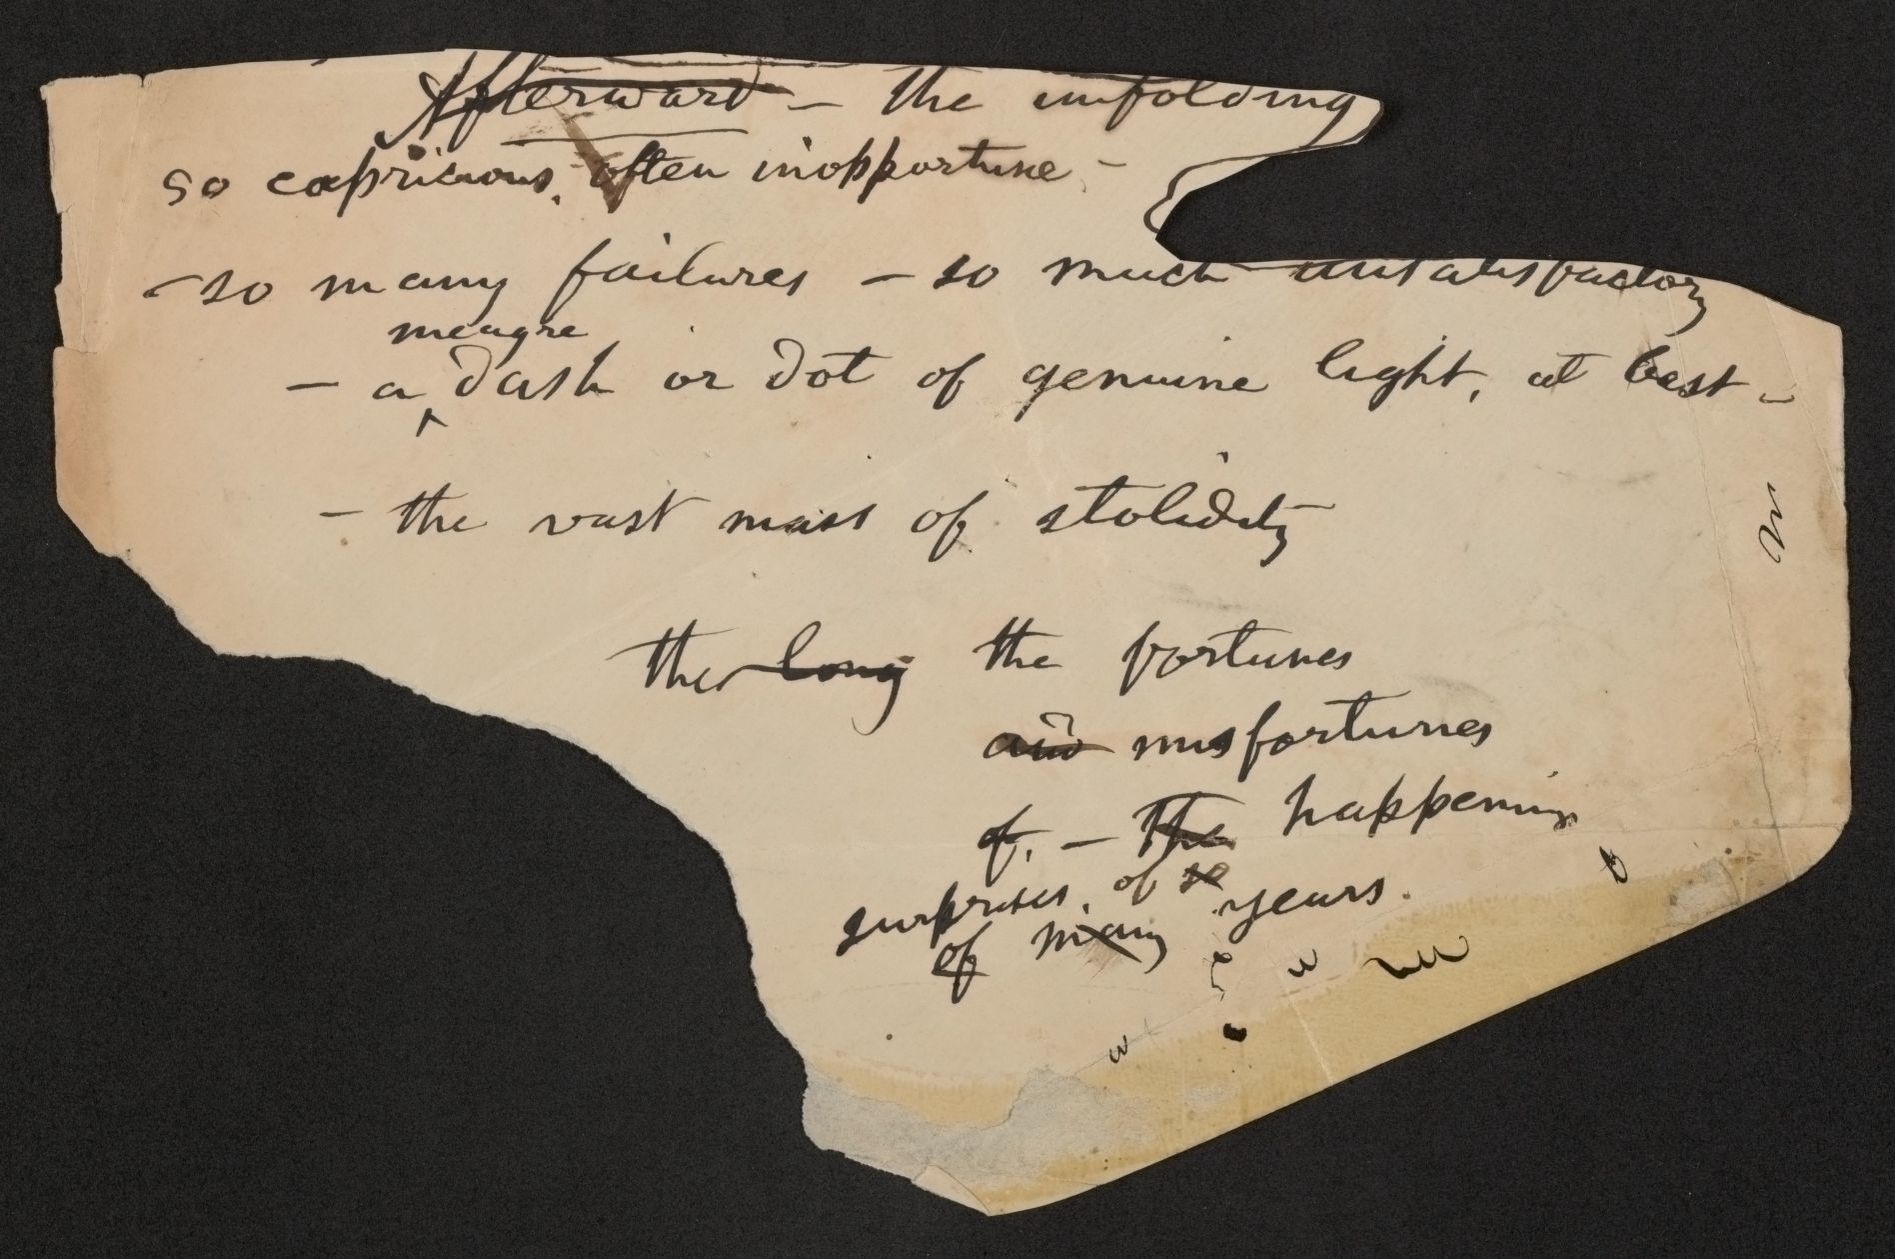 Afterward – the unfolding
so capricious, often inopportune –
– so many failures – so much unsatisfactory
meagre
– a ‸ dash or dot of genuine light, at best –
– the vast mass of stolidity
the long the fortunes
and misfortunes
of, – The happenings
surprises, of so years.
of many